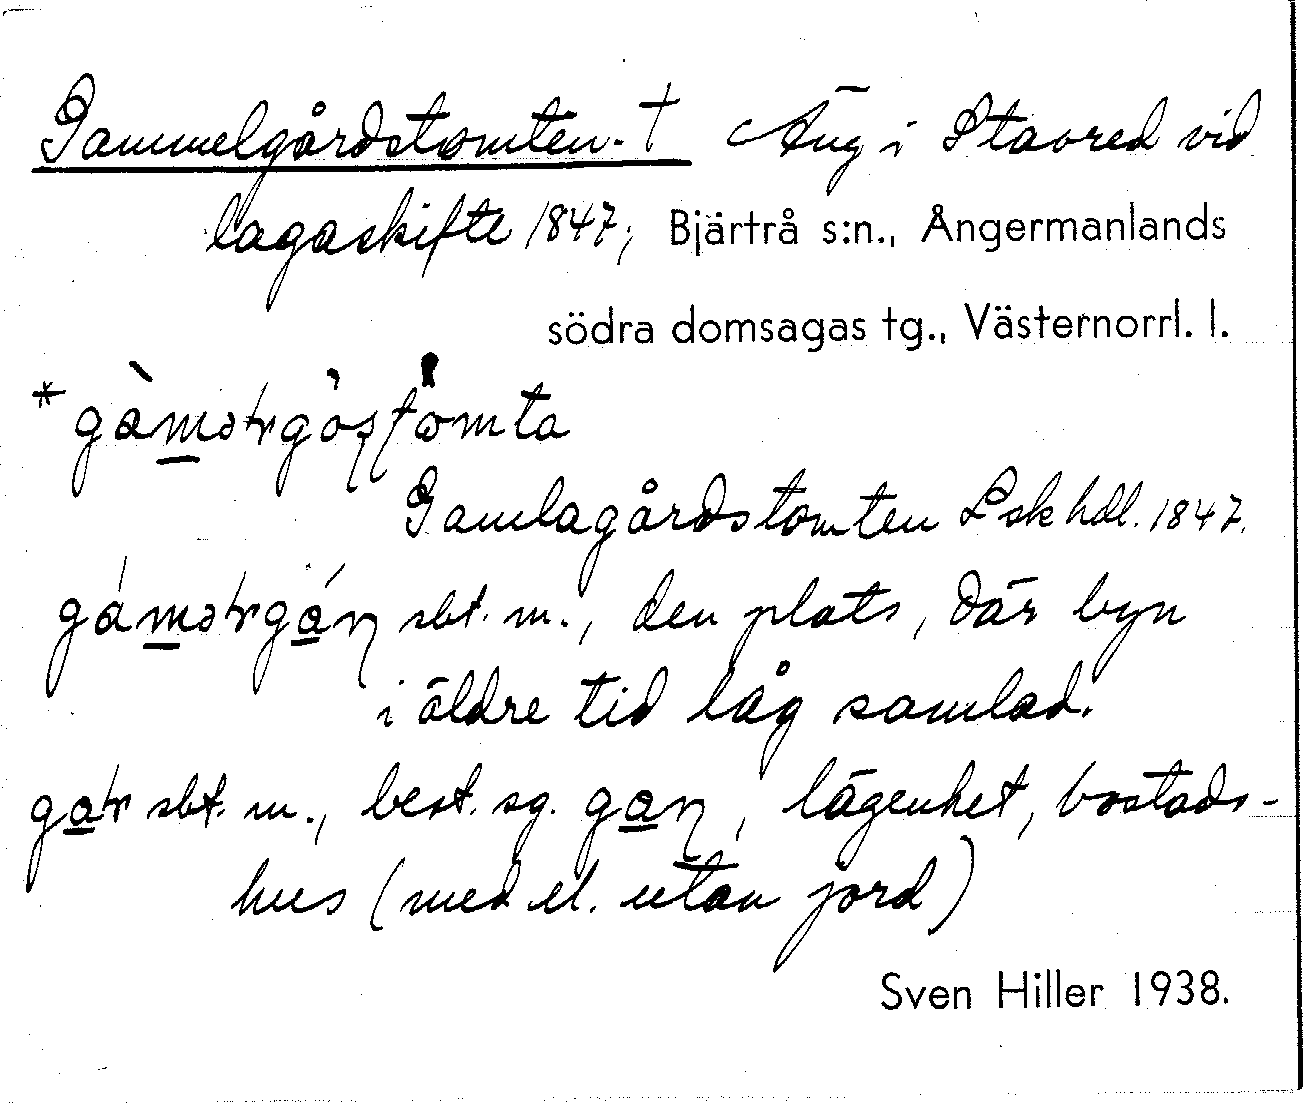 Gammelgårdstomten. † Äng i Stavred vid
lagaskifte 1847, Bjärtrå s:n., Ångermanlands
södra domsagas tg., Västernorrl. l.
Gamlagårdstomten Lsk hdl. 1847.
sbt. m., den plats, där byn
i äldre tid låg samlad.
sbt. m., best. sg. lägenhet, bostads-
hus (med el. utan jord)
Sven Hiller 1938.